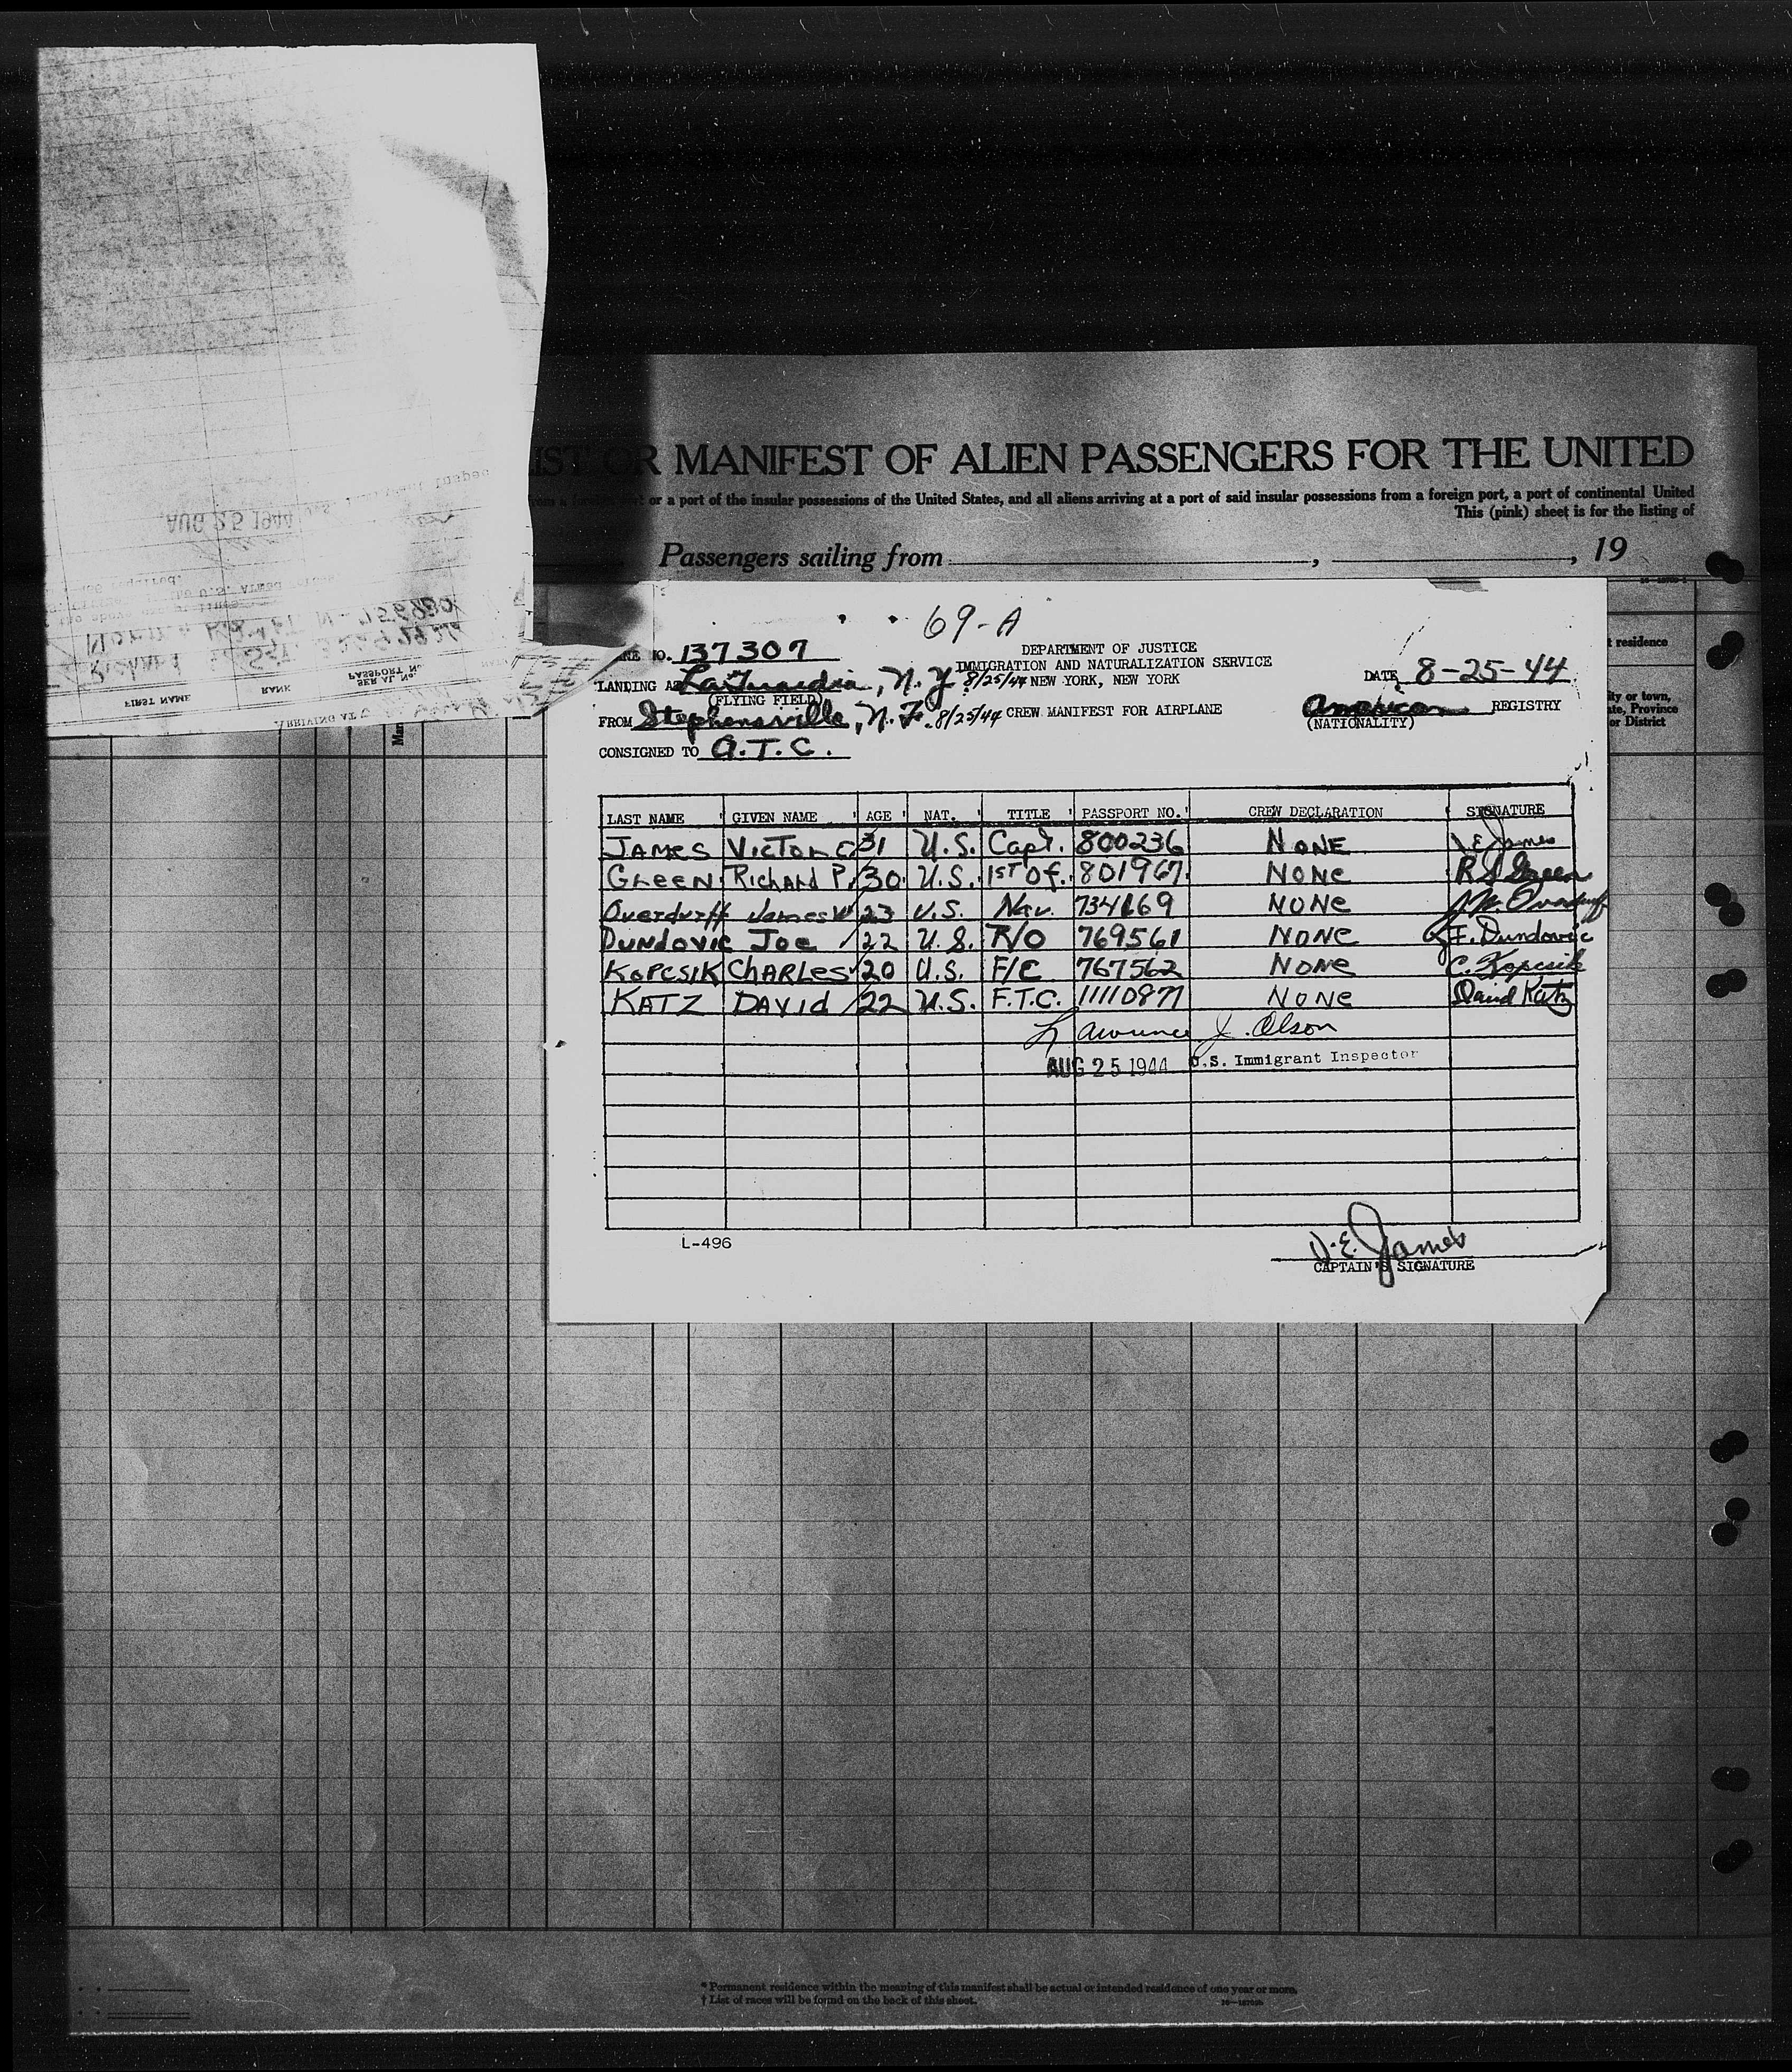 OR MANIFEST OF ALIEN PASSENGERS FOR THE UNITED
or a port of the insular possessions of the United States, and all aliens arriving at a port of said insular possessions from a foreign port, a port of continental United
This (pink) sheet is for the listing of
Passengers sailing from , , 19
69-A
NO. 137307
DEPARTMENT OF JUSTICE
IMMIGRATION AND NATURALIZATION SERVICE
LANDING AT LaGuardia, N.Y. 8/25/44 NEW YORK, NEW YORK
DATE 8-25-44
(FLYING FIELD)
FROM Stephensville, N.F. 8/25/44 CREW MANIFEST FOR AIRPLANE
American REGISTRY
(NATIONALITY)
CONSIGNED TO A.T.C.
LAST NAME GIVEN NAME AGE NAT. TITLE PASSPORT NO. CREW DECLARATION SIGNATURE
JAMES VICTOR 31 U.S. Capt. 800236 NONE V E James
GREEN Richard P. 30 U.S. 1ST Of. 801967 NONE Green
Overdurff James W 23 U.S. Nav. 734169 NONE
DUNDOVIC Joe 22 U.S. R/O 769561 NONE J.F. Dundovic
KOPCSIK CHARLES 20 U.S. F/C 767562 NONE C. Kopcsik
KATZ DAVID 22 U.S. F.T.C. NONE David Katz
Lawrence J. Olson
AUG 25 1944 U.S. Immigrant Inspector
L-496
V.E. James
CAPTAIN'S SIGNATURE
residence
ity or town,
ate, Province
or District
AUG 25 1944
FIRST NAME RANK SERIAL No. PASSPORT No.
ARRIVING AT
* Permanent residence within the meaning of this manifest shall be actual or intended residence of one year or more.
† List of races will be found on the back of this sheet.